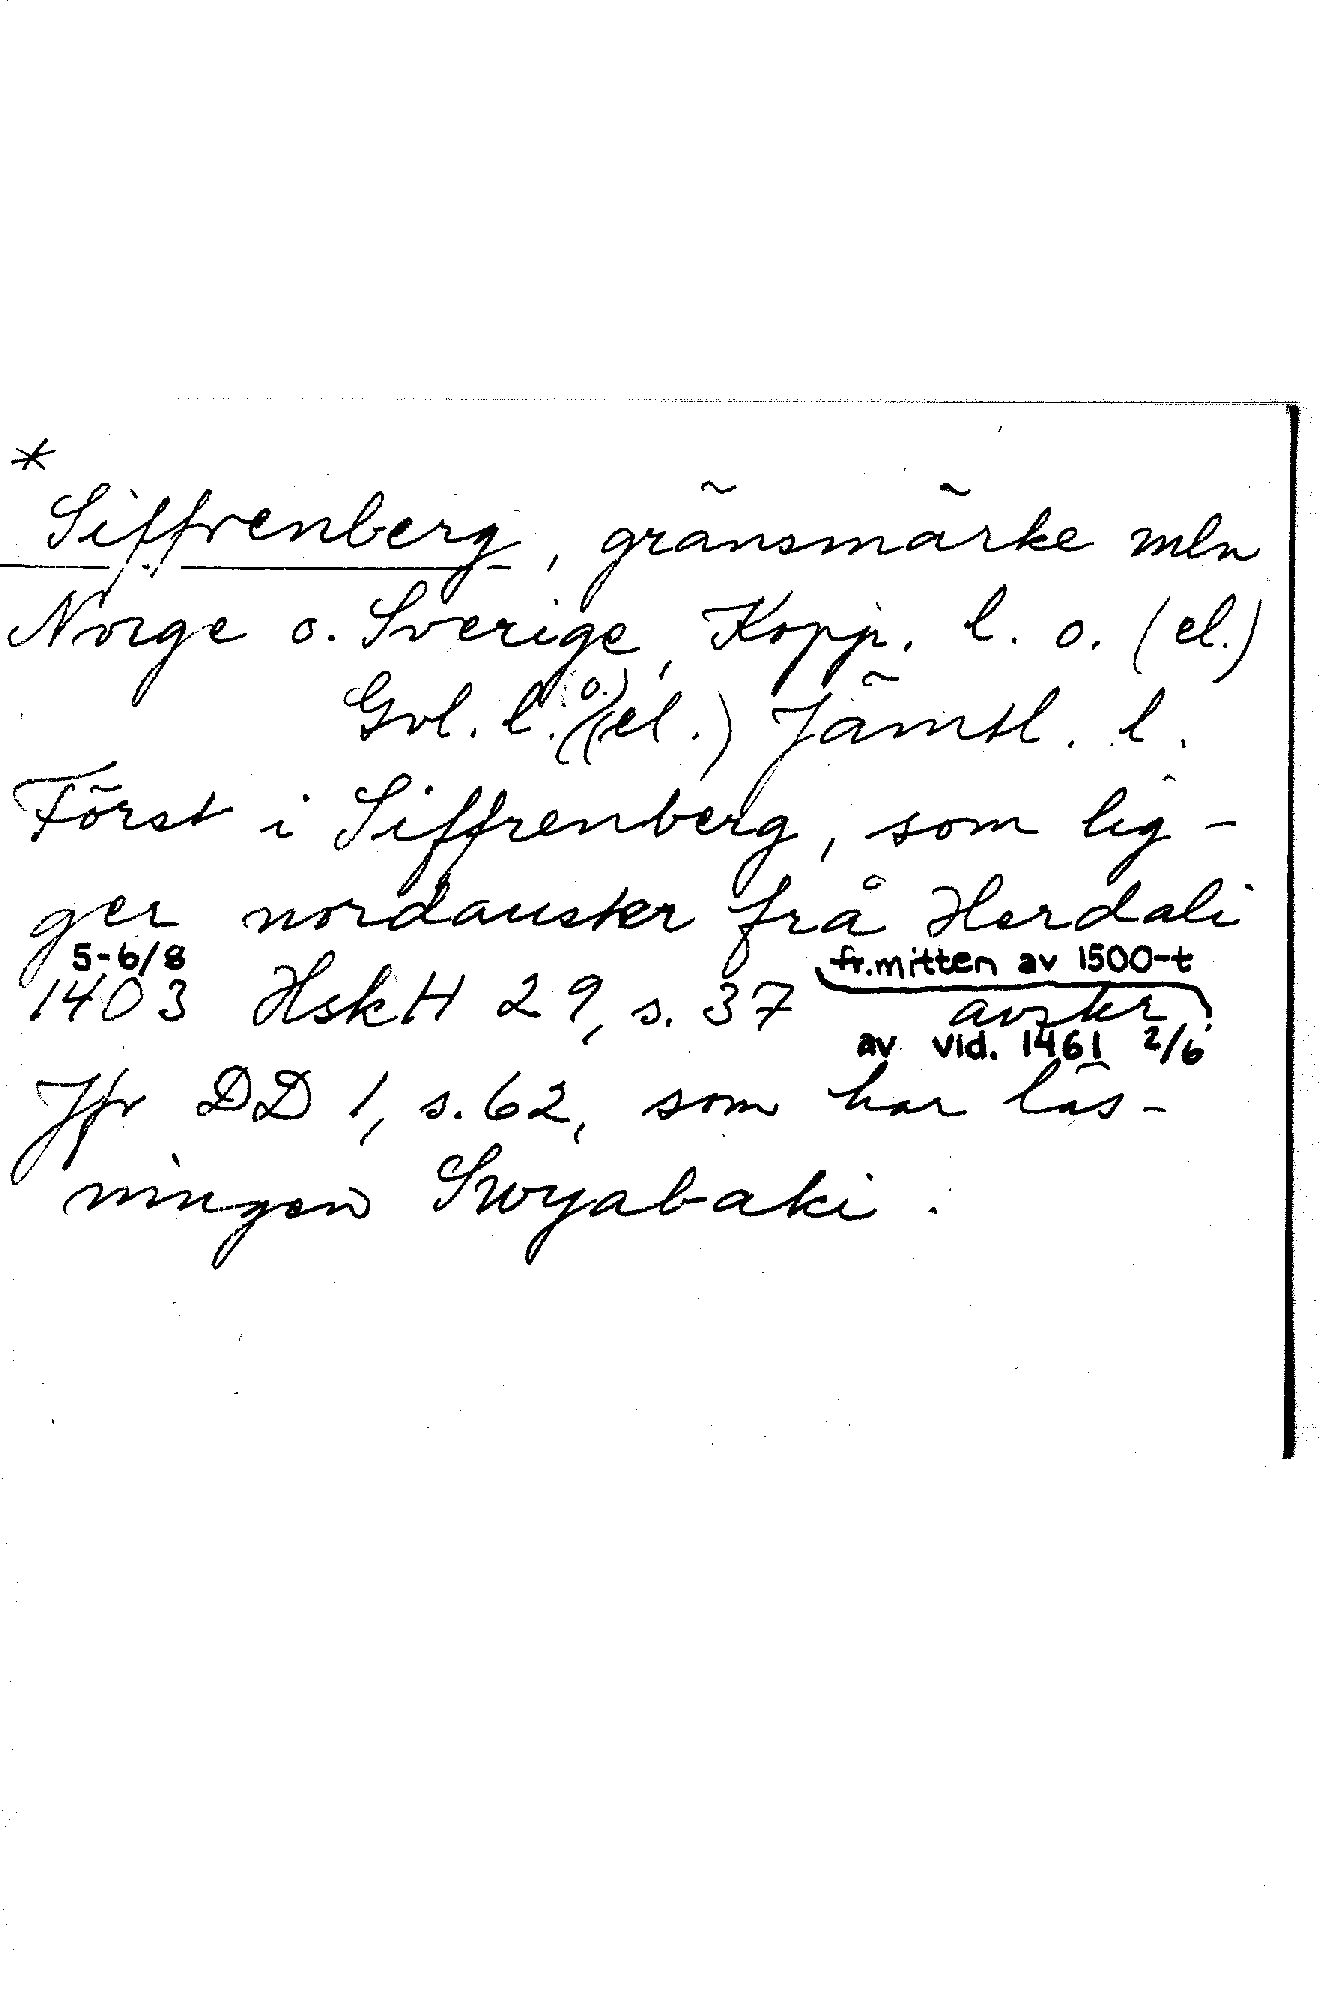 *
Siffrenberg, gränsmärke mln
Norge o. Sverige, Kopp. l. o. (el.)
Gvl. l. (o.) (el.) Jämtl. l.
Först i Siffrenberg, som lig-
ger nordauster från Herdali
5-6/8 fr. mitten av 1500-t
1403 HskH 29, s. 37 avskr.
av vid. 1461 2/6
Jfr DD 1, s. 62, som har läs-
ningen Swyabaki.